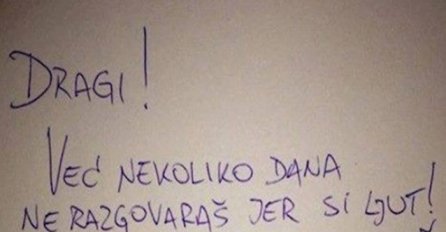 DRAGI!
VEĆ NEKOLIKO DANA
NE RAZGOVARAŠ JER SI LJUT!